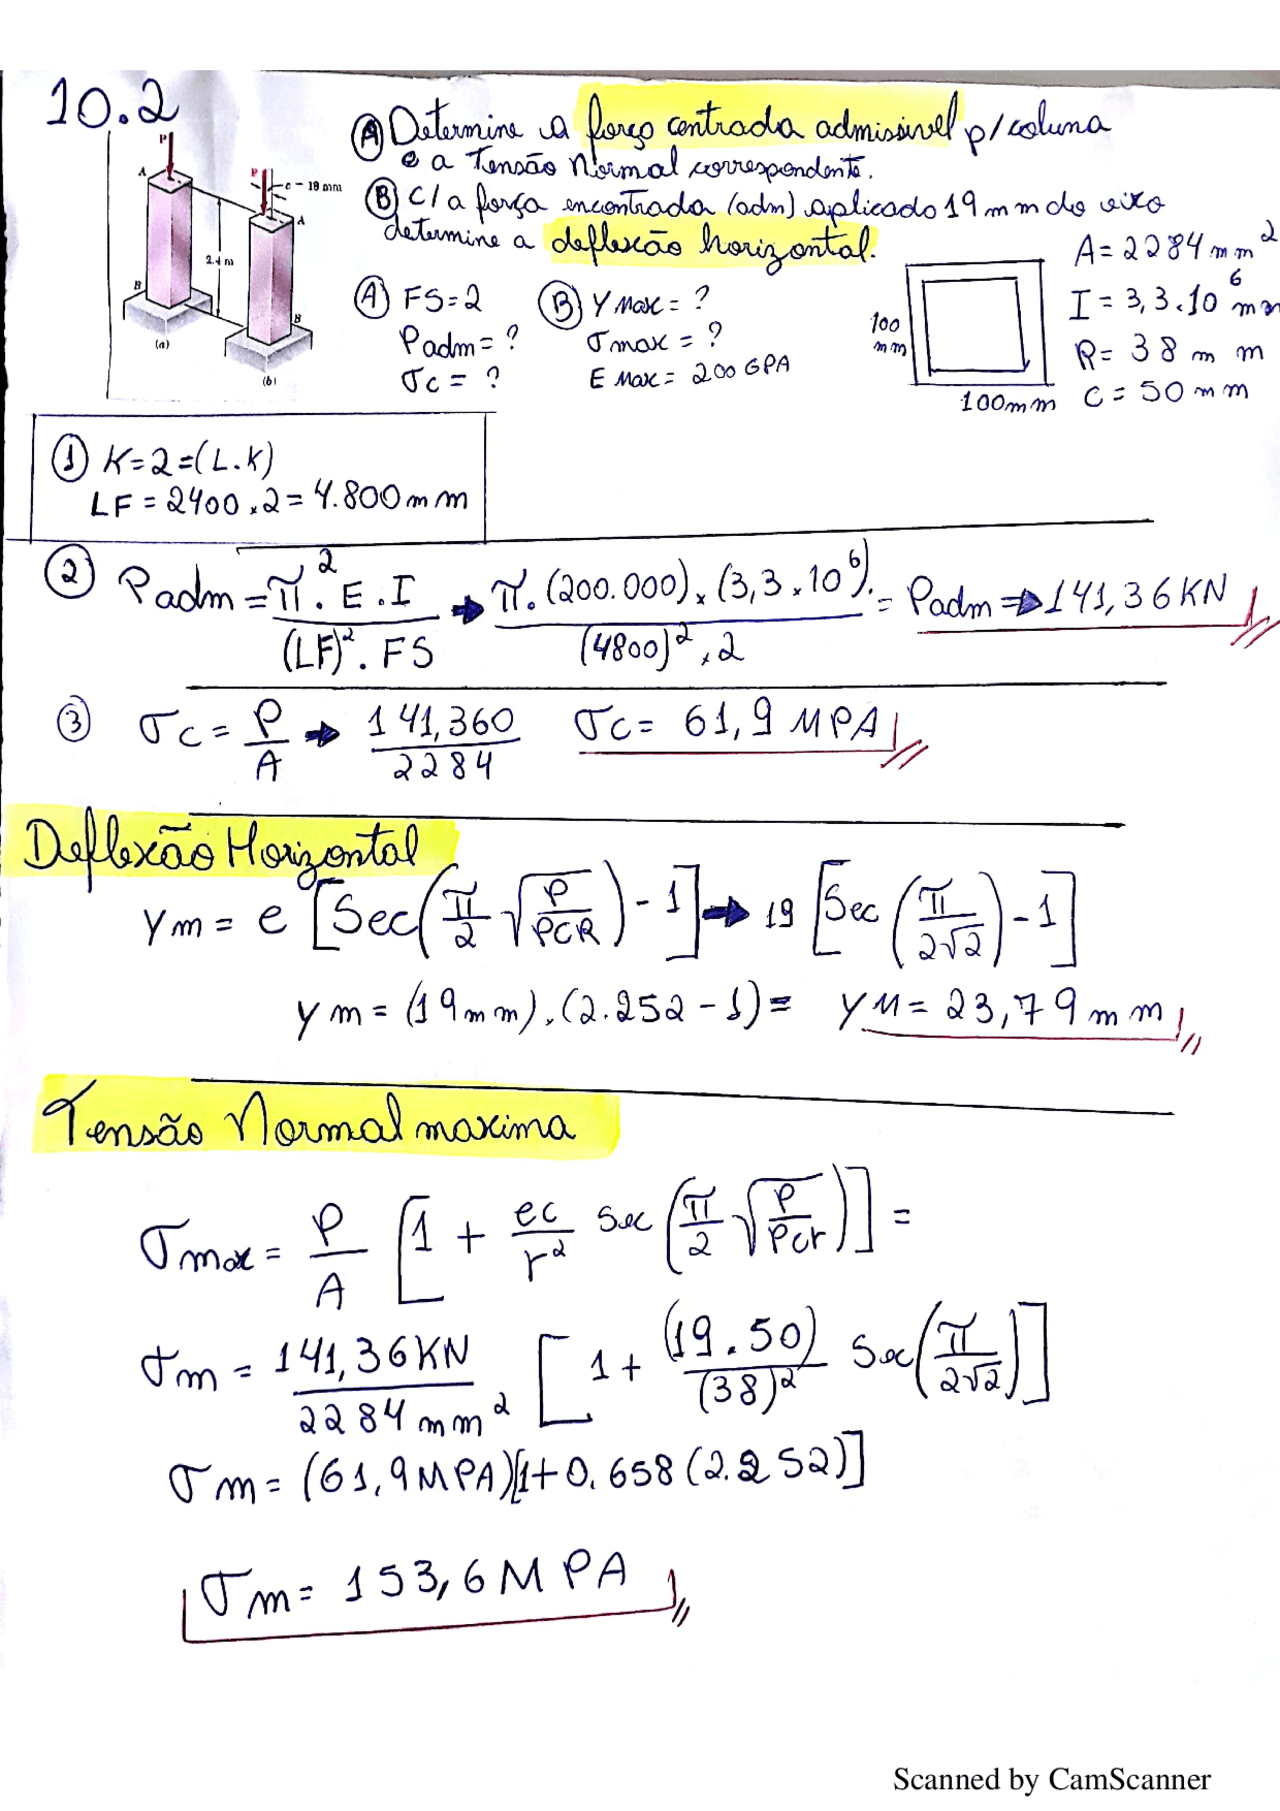 10.2
P
A
B
(a)
P
e - 19 mm
A
2.4 m
B
(b)
Ⓐ Determine a força centrada admissível p/coluna
e a Tensão Normal correspondente.
Ⓑ C/ a força encontrada (adm) aplicado 19 mm do eixo
determine a deflexão horizontal.
Ⓐ FS=2
Padm = ?
σc = ?
Ⓑ Y max = ?
σmax = ?
E Max = 200 GPA
100
mm
100mm
A= 2284 mm²
I = 3,3.10⁶ mm
R= 38 mm
C = 50 mm
① K=2=(L.K)
LF = 2400 × 2 = 4.800 mm
② Padm = π². E . I / (LF)². FS → π. (200.000) × (3,3 × 10⁶). / (4800)² × 2 = Padm ⇒ 141,36 KN
③ σc = P/A → 141,360/2284 σc = 61,9 MPA
Deflexão Horizontal
Ym = e [Sec(π/2 √(P/PCR)) - 1] → 19 [Sec (π/2√2) - 1]
ym = (19mm) . (2.252 - 1) = YM = 23,79 mm
Tensão Normal maxima
σmax = P/A [1 + ec/r² Sec (π/2 √(P/Pcr))] =
σm = 141,36KN/2284 mm² [1 + (19.50)/(38)² Sec (π/2√2)]
σm = (61,9MPA)[1+0.658(2.252)]
σm = 153,6 MPA
Scanned by CamScanner